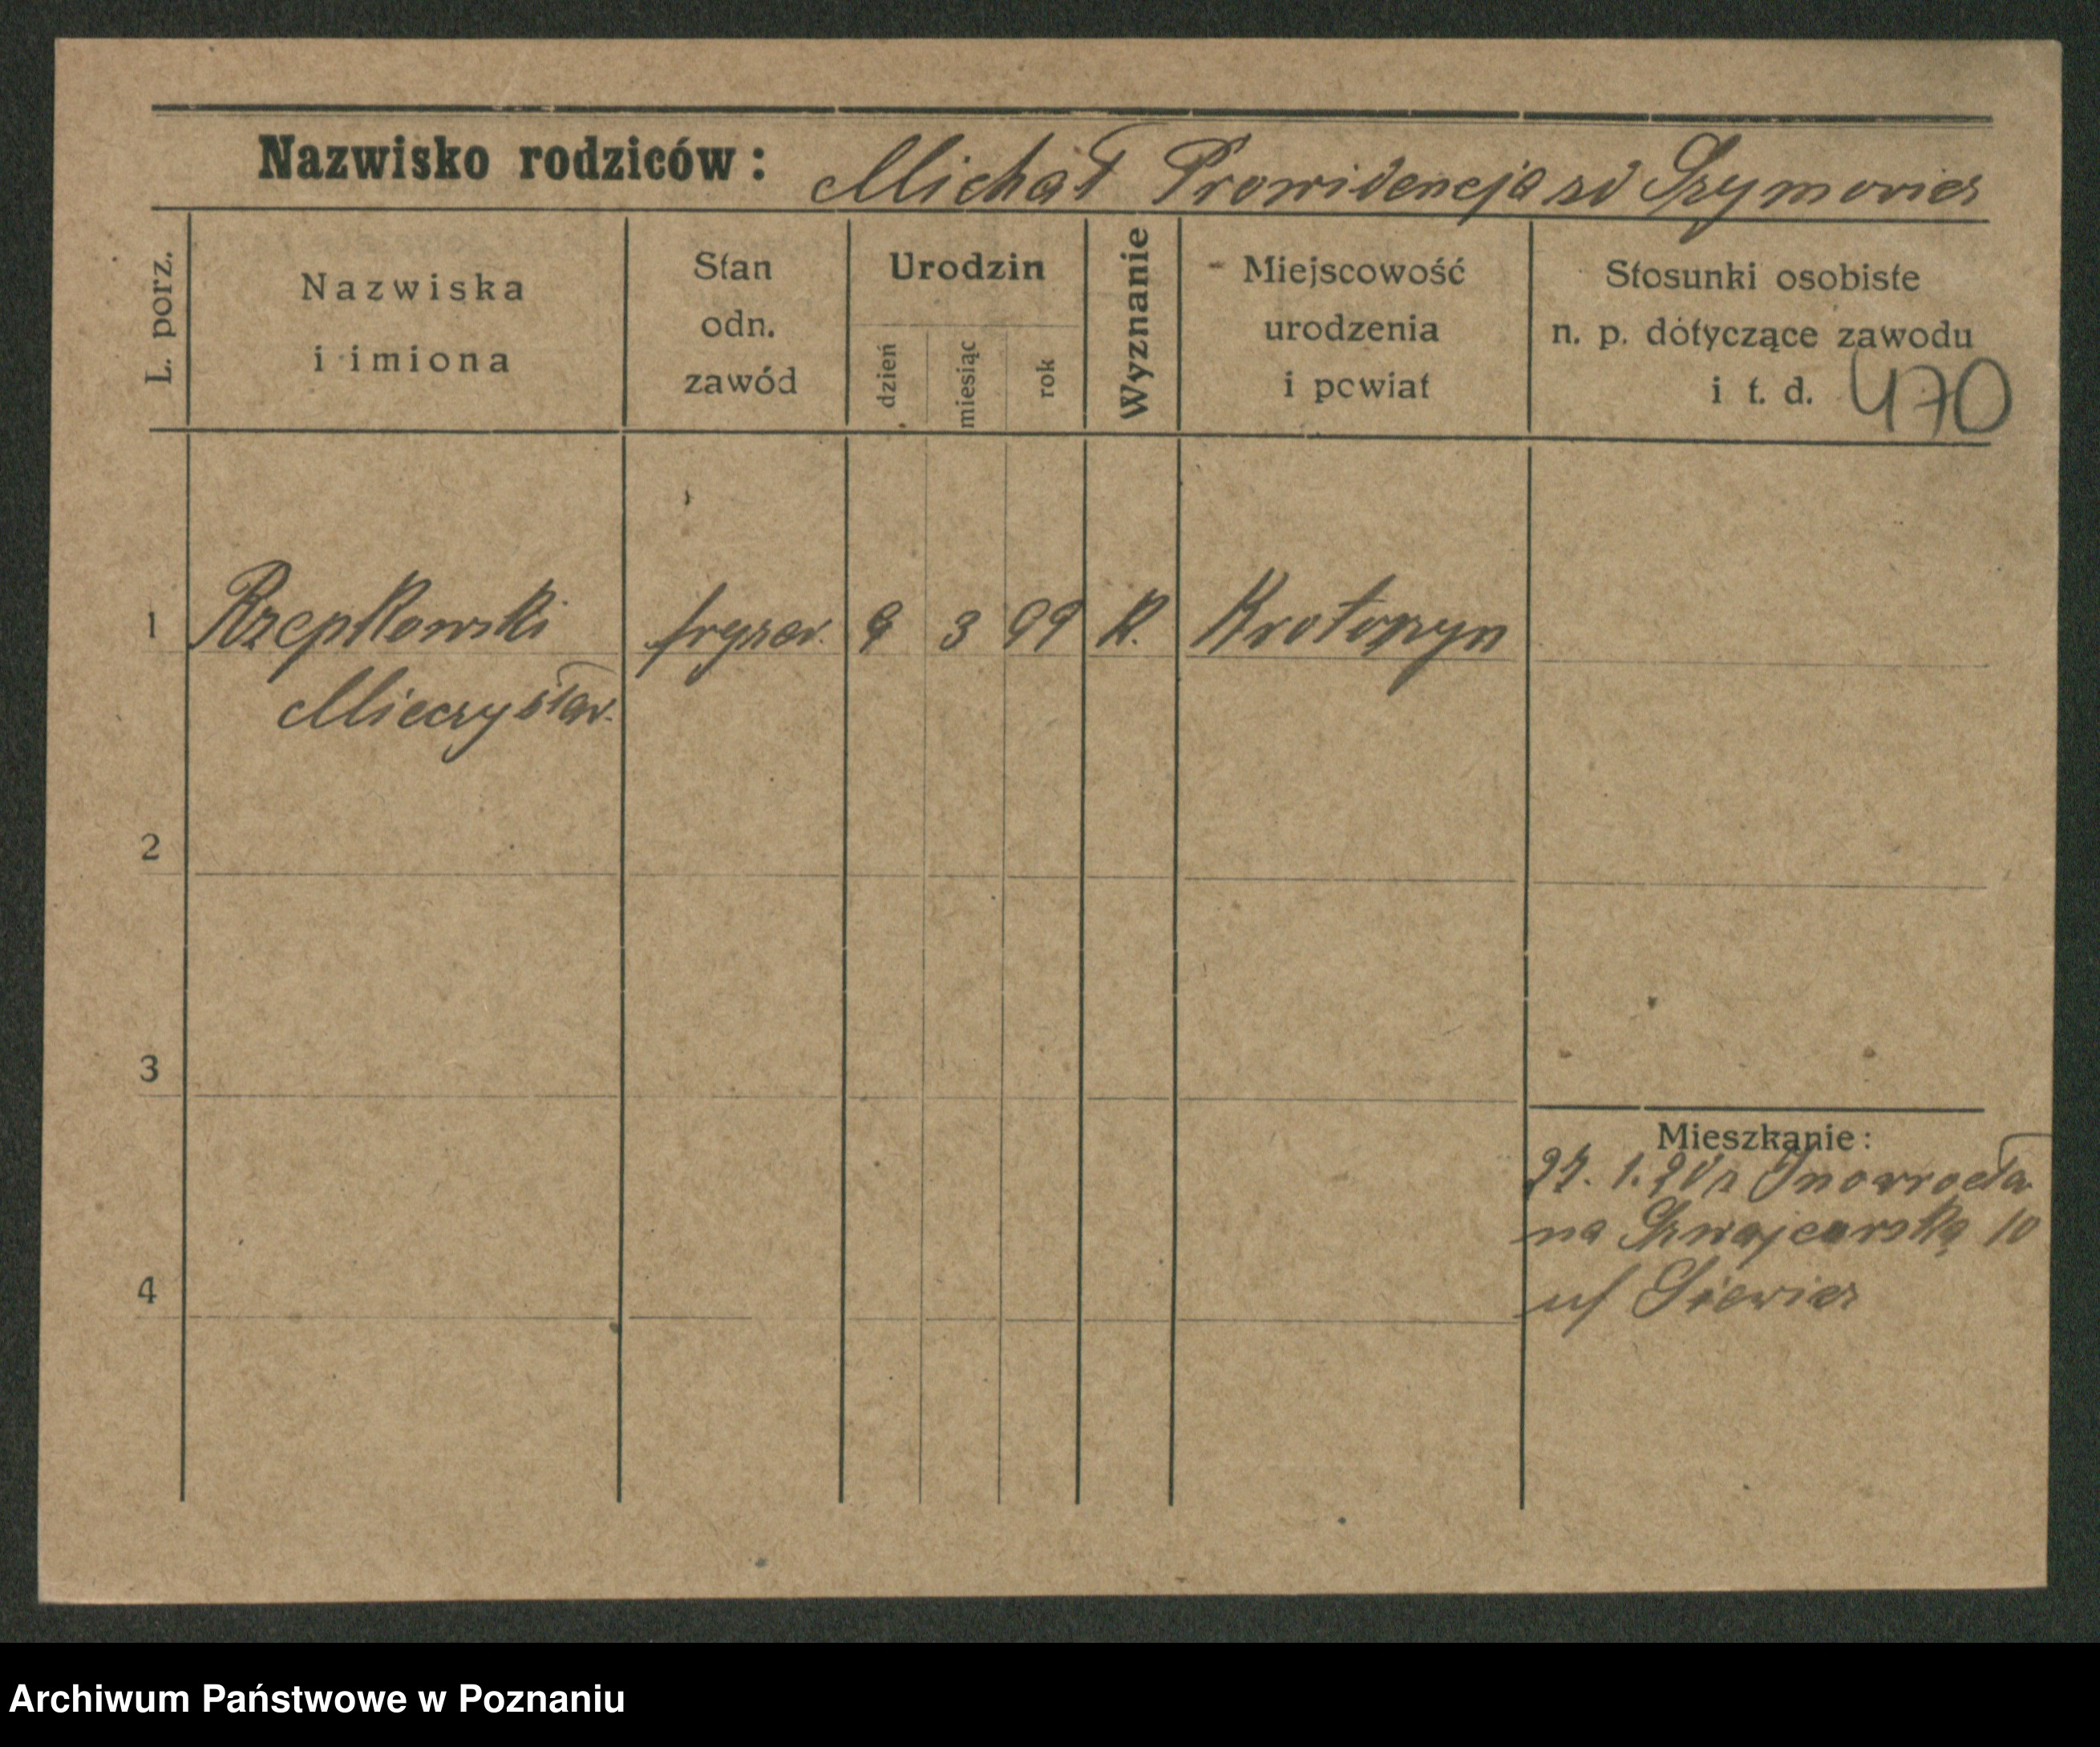 Nazwisko rodziców: Michał Prowidencja zd Szymowicz
L. porz.
Nazwiska
i imiona
Stan
odn.
zawód
Urodzin
dzień
miesiąc
rok
Wyznanie
Miejscowość
urodzenia
i powiat
Stosunki osobiste
n. p. dotyczące zawodu
i t. d. 470
1 Rzepkowski fryzer. 9 3 99 K. Krotoszyn
Mieczysław.
2
3
Mieszkanie:
27. 1. z Inowrocław
na Szwajcarską 10
4
Archiwum Państwowe w Poznaniu